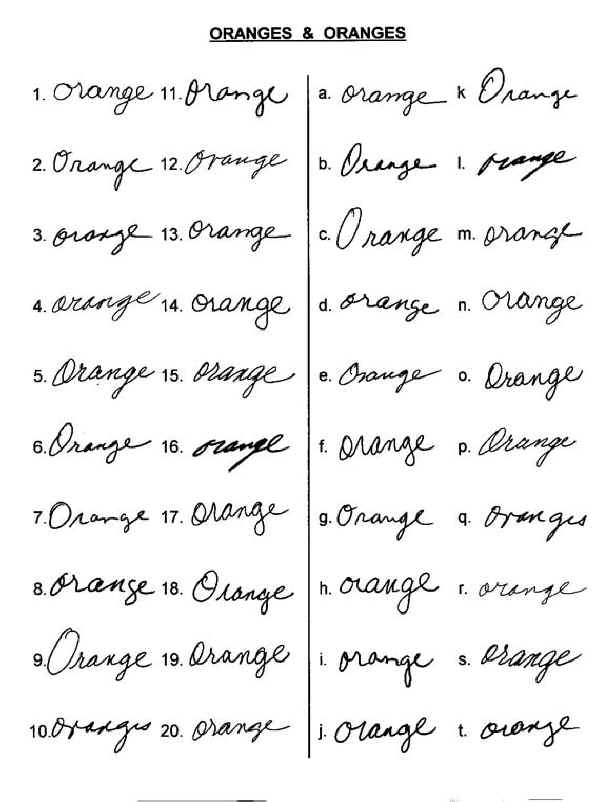 ORANGES & ORANGES
1. orange 11. Orange a. orange k Orange
2. Orange 12. Orange b. Orange l. orange
3. orange 13. Orange c. Orange m. orange
4. orange 14. Orange d. orange n. Orange
5. Orange 15. orange e. Orange o. Orange
6. Orange 16. orange f. orange p. Orange
7. Orange 17. Orange g. Orange q. oranges
8. Orange 18. Orange h. orange r. orange
9. Orange 19. Orange i. orange s. Orange
10. Oranges 20. orange j. orange t. orange